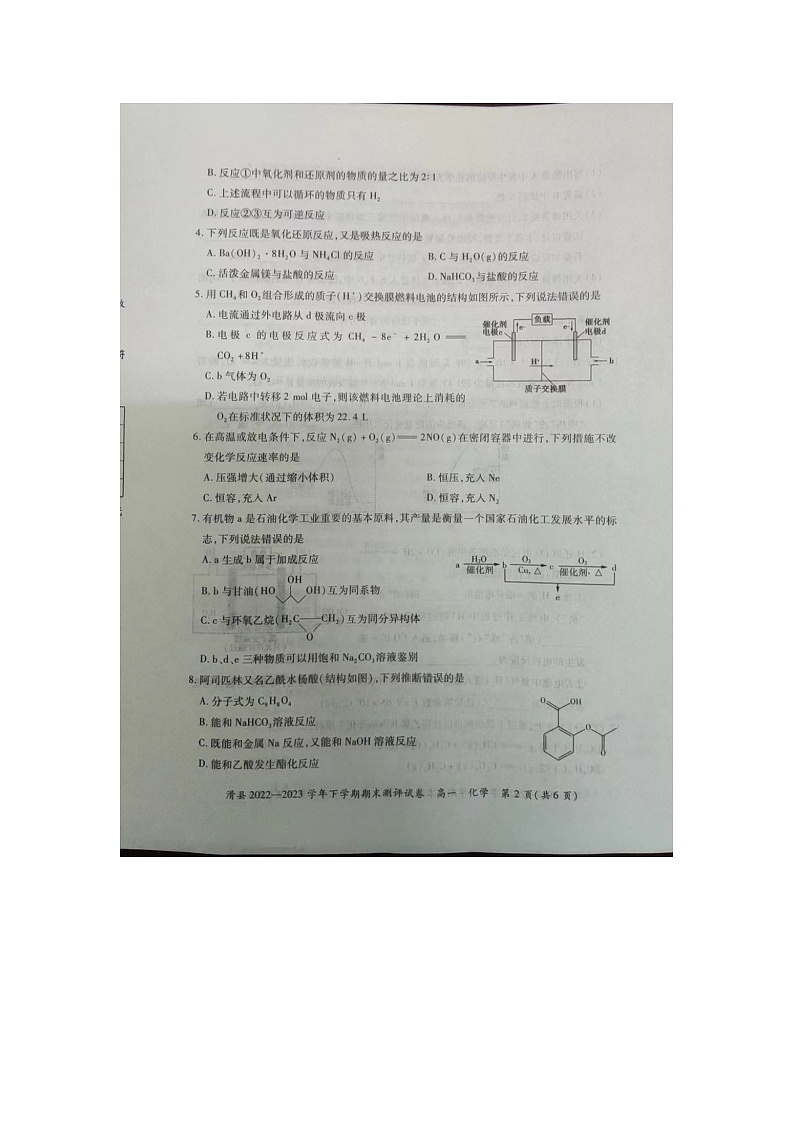 B. 反应①中氧化剂和还原剂的物质的量之比为2∶1
C. 上述流程中可以循环的物质只有 H₂
D. 反应②③互为可逆反应
4. 下列反应既是氧化还原反应,又是吸热反应的是
A. Ba(OH)₂·8H₂O 与 NH₄Cl 的反应 B. C 与 H₂O(g)的反应
C. 活泼金属镁与盐酸的反应 D. NaHCO₃与盐酸的反应
5. 用 CH₄和 O₂组合形成的质子(H⁺)交换膜燃料电池的结构如图所示,下列说法错误的是
A. 电流通过外电路从 d 极流向 c 极
B. 电极 c 的电极反应式为 CH₄ - 8e⁻ + 2H₂O ══
CO₂ + 8H⁺
C. b 气体为 O₂
D. 若电路中转移 2 mol 电子,则该燃料电池理论上消耗的
O₂在标准状况下的体积为 22.4 L
催化剂 电极c e⁻ 负载 e⁻ 催化剂 电极d
a H⁺ b
质子交换膜
6. 在高温或放电条件下,反应 N₂(g) + O₂(g)══2NO(g)在密闭容器中进行,下列措施不改
变化学反应速率的是
A. 压强增大(通过缩小体积) B. 恒压,充入 Ne
C. 恒容,充入 Ar D. 恒容,充入 N₂
7. 有机物 a 是石油化学工业重要的基本原料,其产量是衡量一个国家石油化工发展水平的标
志,下列说法错误的是
A. a 生成 b 属于加成反应
a H₂O 催化剂 b O₂ Cu,△ c O₂ 催化剂,△ d
e
B. b 与甘油(HO OH OH)互为同系物
C. c 与环氧乙烷(H₂C CH₂ O)互为同分异构体
D. b、d、e 三种物质可以用饱和 Na₂CO₃溶液鉴别
8. 阿司匹林又名乙酰水杨酸(结构如图),下列推断错误的是
A. 分子式为 C₉H₈O₄
B. 能和 NaHCO₃溶液反应
C. 既能和金属 Na 反应,又能和 NaOH 溶液反应
D. 能和乙酸发生酯化反应
O OH O O
滑县 2022—2023 学年下学期期末测评试卷 高一 化学 第 2 页(共 6 页)